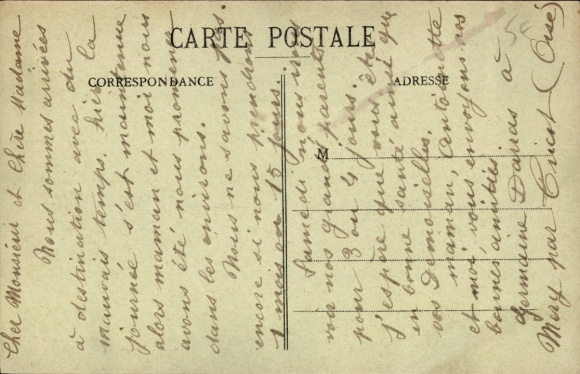 CARTE POSTALE
CORRESPONDANCE
ADRESSE
M
Cher Monsieur et Chère Madame
Nous sommes arrivées
à destination avec du
mauvais temps. hier la
journée s'est maintenue
alors maman et moi nous
avons été nous promener
dans les environs.
Nous ne savons pas
encore si nous prendrons
1 mois ou 15 jours.
Samedi nous irons
voir nos grands parents
pour 3 ou 4 jours.
J'espère que vous êtes
en bonne santé ainsi que
vos demoiselles.
maman, Antoinette
et moi vous envoyons nos
bonnes amitiés
Germaine à
Mery par (Oise)